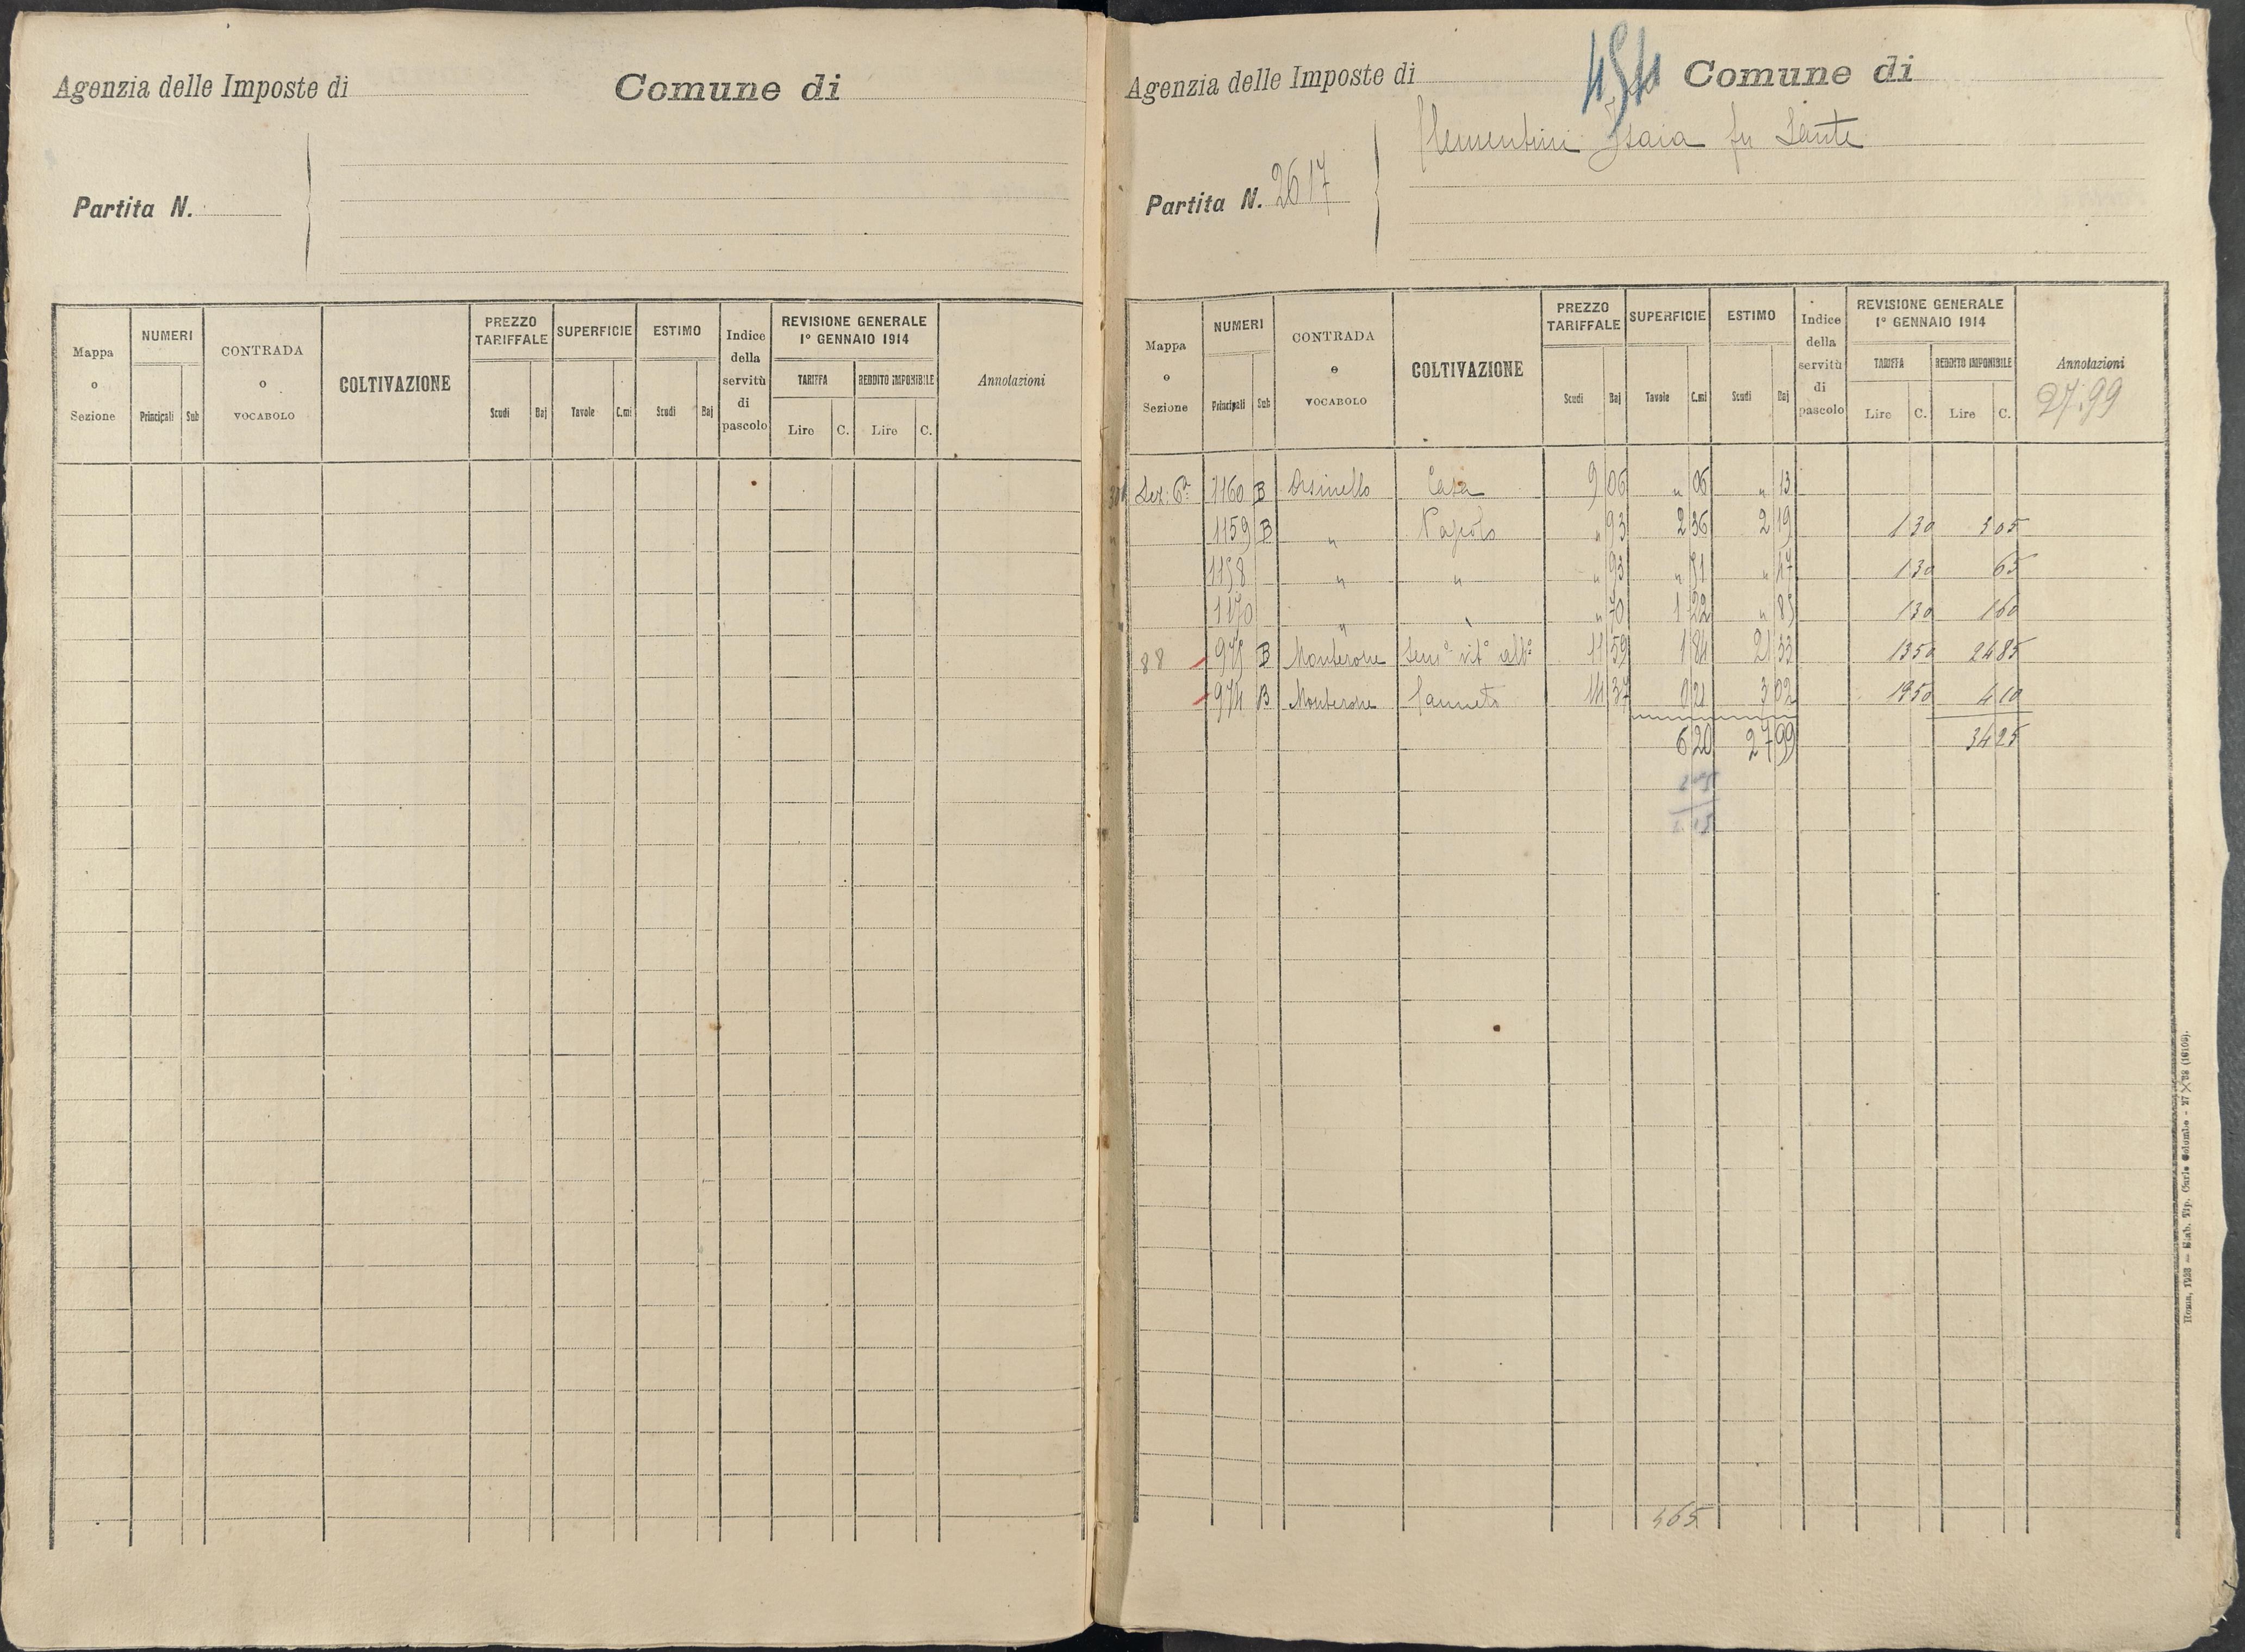 Agenzia delle Imposte di Comune di
Partita N.
Mappa o Sezione NUMERI Principali Sub CONTRADA o VOCABOLO COLTIVAZIONE PREZZO TARIFFALE Scudi Baj SUPERFICIE Tavole C.mi ESTIMO Scudi Baj Indice della servitù di pascolo REVISIONE GENERALE 1° GENNAIO 1914 TARIFFA Lire C. REDDITO IMPONIBILE Lire C. Annotazioni
Agenzia delle Imposte di 454 Comune di
Clementini Isaia fu Sante
Partita N. 2617
Mappa o Sezione NUMERI Principali Sub CONTRADA o VOCABOLO COLTIVAZIONE PREZZO TARIFFALE Scudi Baj SUPERFICIE Tavole C.mi ESTIMO Scudi Baj Indice della servitù di pascolo REVISIONE GENERALE 1° GENNAIO 1914 TARIFFA Lire C. REDDITO IMPONIBILE Lire C. Annotazioni
27.99
Sez: 6ª 1160 B Orsinello Casa 9 06 " 06 " 13
1159 B " " 93 2 36 2 19 1 30 3 05
1158 " " " 93 " 51 " 47 1 30 65
1170 " " " 70 1 22 " 85 1 30 1 60
88 975 B Monterone Sem° vit° alb° 11 59 1 84 21 33 13 50 24 85
974 B Monterone Canneto 14 37 0 21 3 02 19 50 4 10
6 20 27 99 34 25
465
Roma, 1928 — Stab. Tip. Carlo Colombo